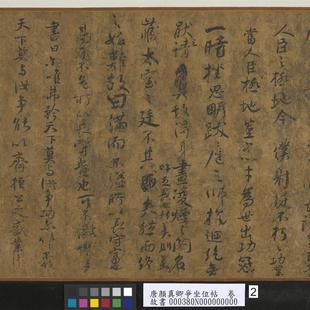 人臣之極地今僕射挺不朽之功業
當人臣極地豈不以才為世出功冠
一時挫思明跋扈之師抗迴紇無
厭之請故得身畫凌煙之閣名
藏太室之廷
吁足畏也然美則美
矣而終
之始難故曰滿而不溢所以長守富
也高而不危所以長守貴也可不儆懼乎
書曰爾唯弗矜天下莫與汝爭功爾唯不伐
天下莫與汝爭能以齊桓公之盛業
唐顏真卿爭坐位帖 卷
故書000380N000000000
2